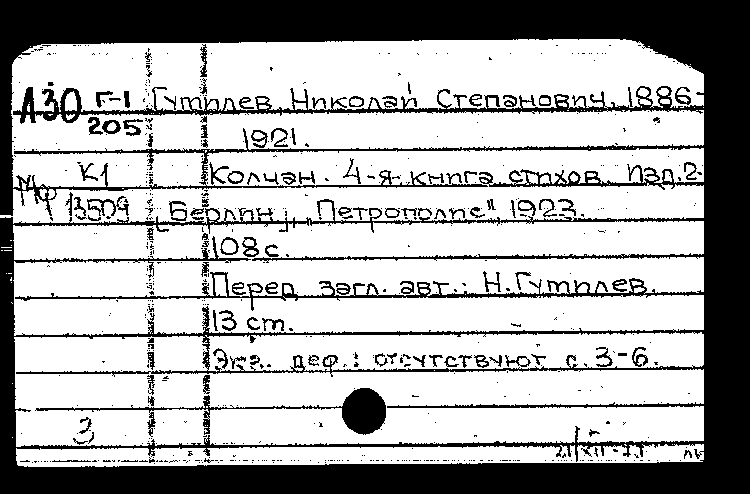 А30 Г-1 Гумилев, Николай Степанович, 1886-
205 1921.
К1 Колчан. 4-я книга стихов. Изд. 2-
Мф 13509 [Берлин], "Петрополис" 1923.
108 с.
Перед загл. авт.: Н. Гумилев.
13 cm.
Экз. деф.: отсутствуют с. 3-6.
3